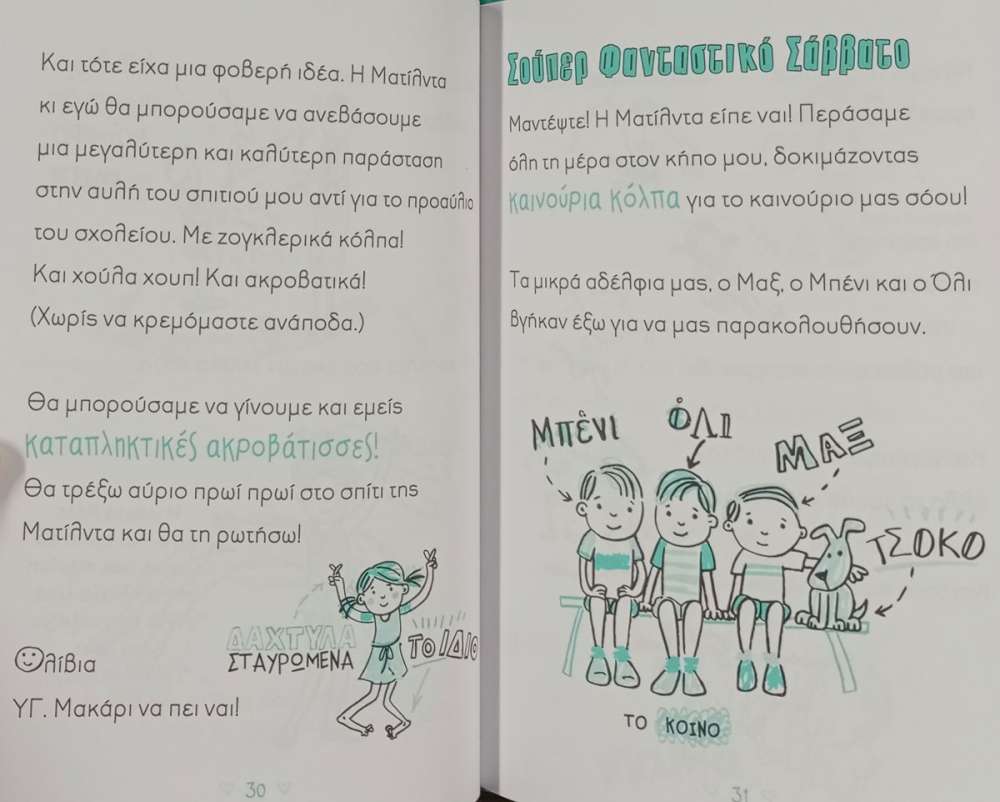 Και τότε είχα μια φοβερή ιδέα. Η Ματίλντα
κι εγώ θα μπορούσαμε να ανεβάσουμε
μια μεγαλύτερη και καλύτερη παράσταση
στην αυλή του σπιτιού μου αντί για το προαύλιο
του σχολείου. Με ζογκλερικά κόλπα!
Και χούλα χουπ! Και ακροβατικά!
(Χωρίς να κρεμόμαστε ανάποδα.)
Θα μπορούσαμε να γίνουμε και εμείς
καταπληκτικές ακροβάτισσες!
Θα τρέξω αύριο πρωί πρωί στο σπίτι της
Ματίλντα και θα τη ρωτήσω!
ΔΑΧΤΥΛΑ
ΣΤΑΥΡΩΜΕΝΑ
ΤΟ ΙΔΙΟ
Ολίβια
ΥΓ. Μακάρι να πει ναι!
30
Σούπερ Φανταστικό Σάββατο
Μαντέψτε! Η Ματίλντα είπε ναι! Περάσαμε
όλη τη μέρα στον κήπο μου, δοκιμάζοντας
καινούρια κόλπα για το καινούριο μας σόου!
Τα μικρά αδέλφια μας, ο Μαξ, ο Μπένι και ο Όλι
βγήκαν έξω για να μας παρακολουθήσουν.
ΜΠΕΝΙ
ΌΛΙ
ΜΑΞ
ΤΣΟΚΟ
ΤΟ ΚΟΙΝΟ
31